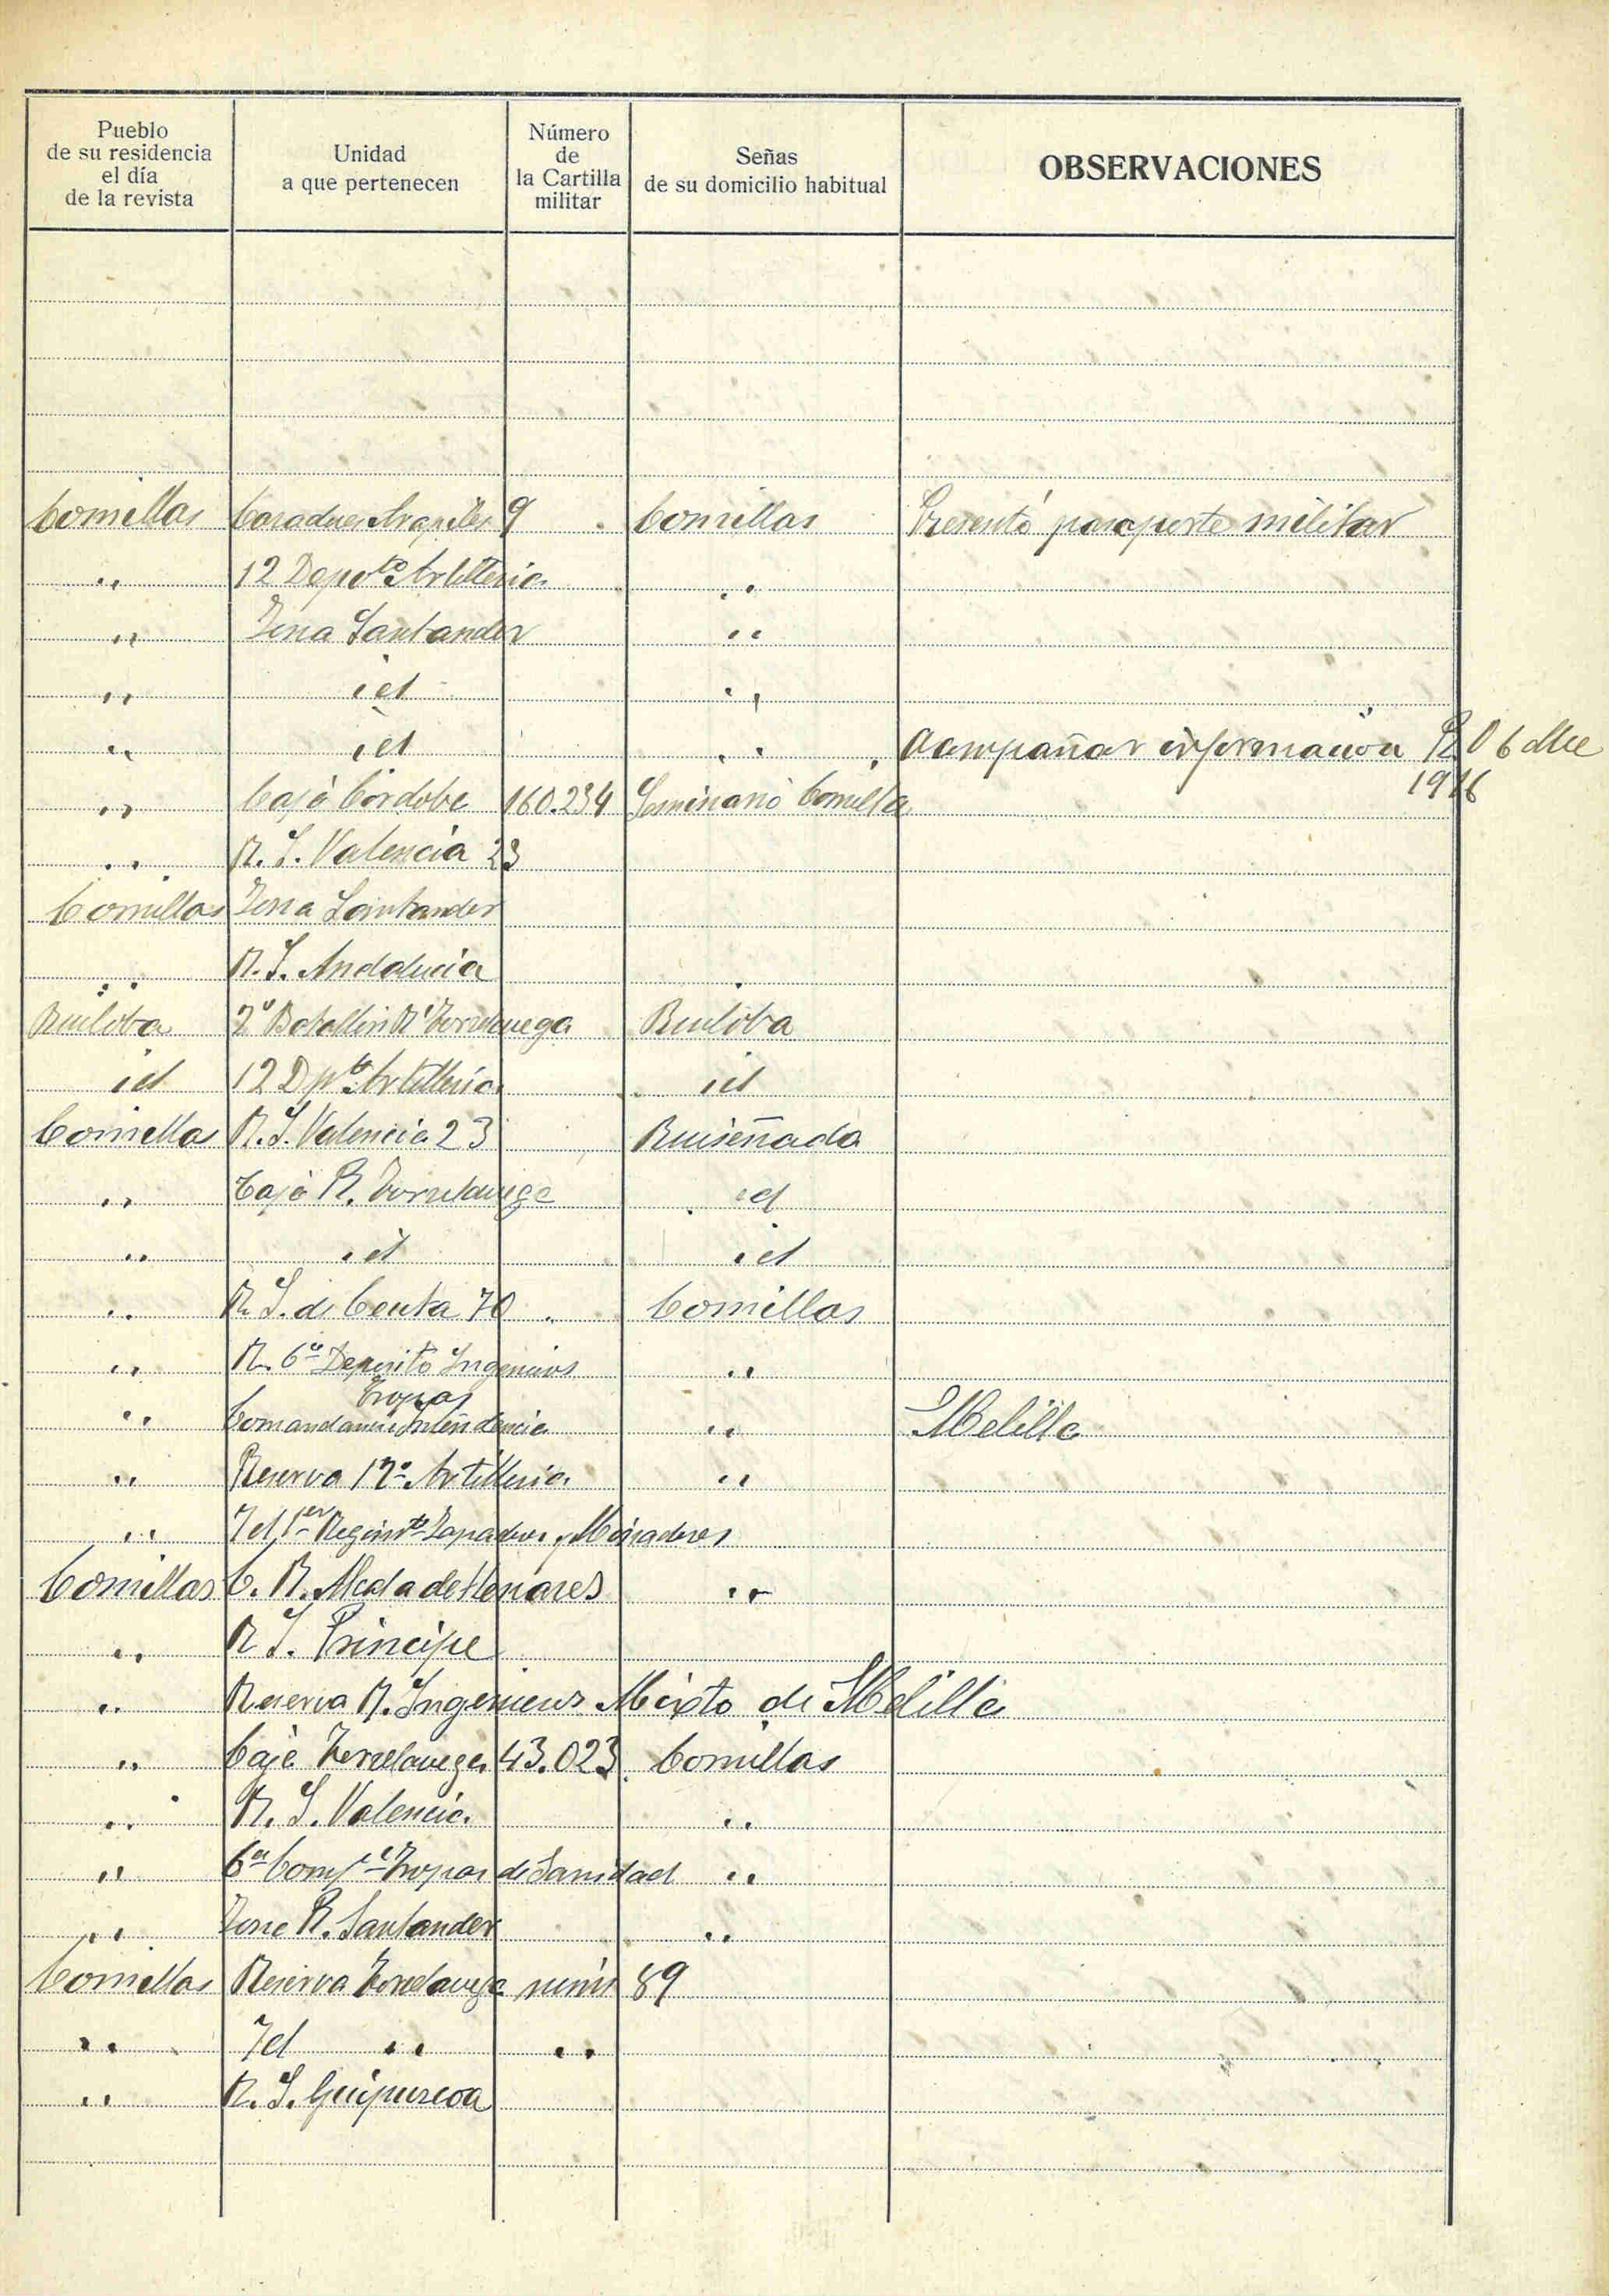 Pueblo
de su residencia
el día
de la revista
Unidad
a que pertenecen
Número
de
la Cartilla
militar
Señas
de su domicilio habitual
OBSERVACIONES
Comillas Cazadores Arapiles 9 Comillas Presentó pasaporte militar
,, 12 Depto Artilleria ,,
,, Zona Santander ,,
,, id ,,
,, id ,, Acompañar información R O 6
1916
,, Caja Córdoba 160.234 Seminario Comillas
,, R. I. Valencia 23
Comillas Zona Santander
,, R. I. Andalucia ,,
Ruiloba 2º Batallón Rª Torrelavega Ruiloba
id 12 Dpto Artilleria id
Comillas R. I. Valencia 23 Ruiseñada
,, Caja R. Torrelavega id
,, id id
,, R. I. de Ceuta 70 Comillas
,, R. 6º Deposito Ingenieros ,,
Tropas
,, Comandancia Intendencia ,, Melilla
,, Reserva 12º Artilleria ,,
,, Id 1er Regimto Zapadores Minadores
Comillas C. R. Alcala de Henares ,,
,, R I. Principe
,, Reserva R. Ingenieros Mixto de Melilla
,, Caja Torrelavega 43.023 Comillas
,, R. I. Valencia ,,
,, 6ª Compª Tropas de Sanidad ,,
,, Zona R. Santander ,,
Comillas Reserva Torrelavega núm 89
,, Id ,, ,,
,, R. I. Guipuzcoa